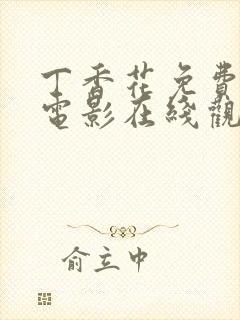 丁香花免费
电影在綫觀
俞立中